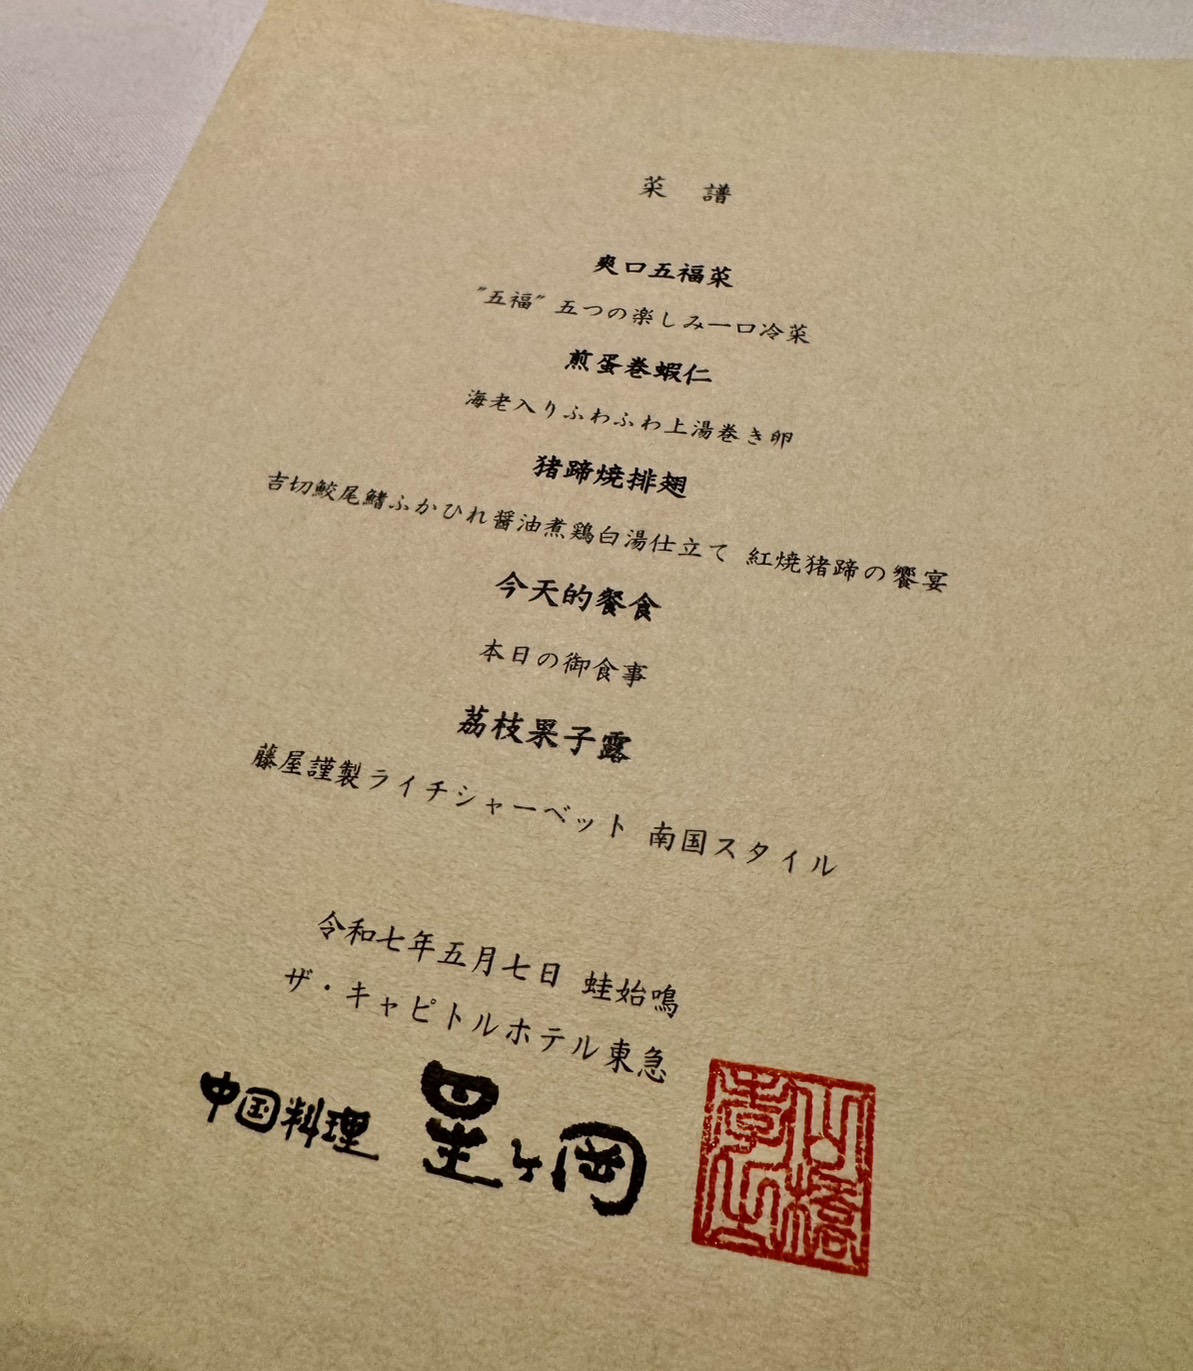 菜 譜
爽口五福菜
"五福" 五つの楽しみ一口冷菜
煎蛋巻蝦仁
海老入りふわふわ上湯巻き卵
猪蹄焼排翅
吉切鮫尾鰭ふかひれ醤油煮鶏白湯仕立て 紅焼猪蹄の饗宴
今天的餐食
本日の御食事
荔枝果子露
藤屋謹製ライチシャーベット 南国スタイル
令和七年五月七日 蛙始鳴
ザ・キャピトルホテル東急
中国料理 星ヶ岡